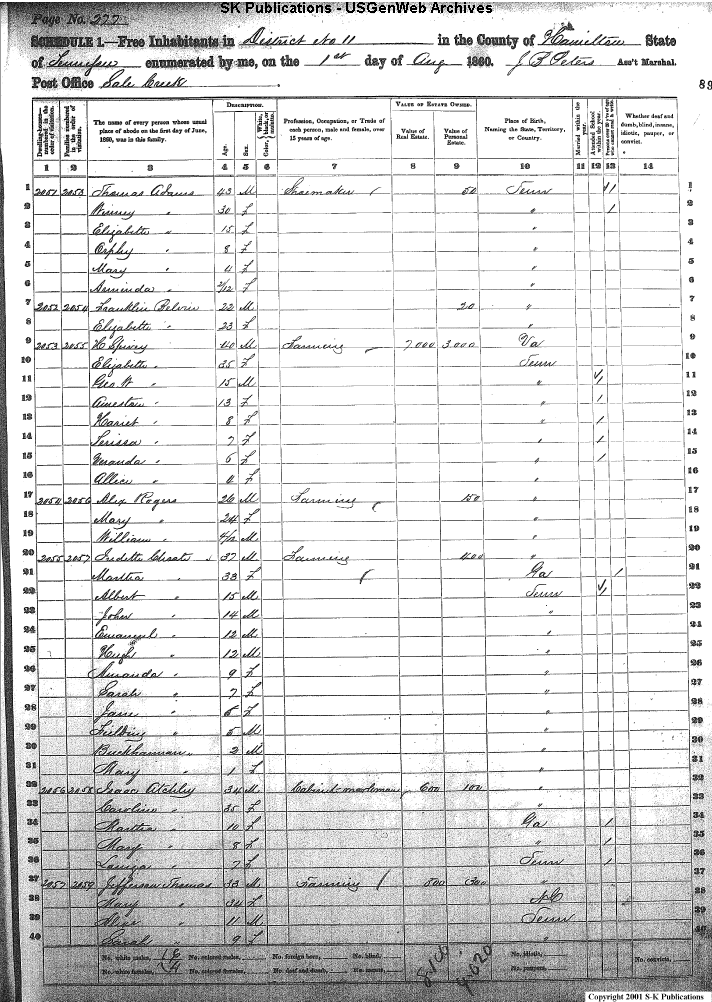 SK Publications - USGenWeb Archives
Page No. 277
SCHEDULE 1.—Free Inhabitants in District No 11 in the County of Hamilton State
of Tennessee enumerated by me, on the 1st day of Aug 1860. Ass't Marshal.
Post Office Sale Creek
89
Dwelling-houses—numbered in the order of visitation.
Families numbered in the order of visitation.
The name of every person whose usual place of abode on the first day of June, 1860, was in this family.
DESCRIPTION.
Age.
Sex.
Color, White, black, or mulatto.
Profession, Occupation, or Trade of each person, male and female, over 15 years of age.
VALUE OF ESTATE OWNED.
Value of Real Estate.
Value of Personal Estate.
Place of Birth, Naming the State, Territory, or Country.
Married within the year.
Attended School within the year.
Persons over 20 y'rs of age who cannot read & write.
Whether deaf and dumb, blind, insane, idiotic, pauper, or convict.
1 2 3 4 5 6 7 8 9 10 11 12 13 14
1 2051 2053 Thomas Adams 43 M Shoemaker 50 Tenn 1 1
2 " 30 F " 2
3 Elizabeth " 15 F " 3
4 Orphy " 8 F " 4
5 Mary " 4 F " 5
6 Arminda " 2/12 F " 6
7 2052 2054 Franklin 22 M 20 " 7
8 Elizabeth " 23 F " 8
9 2053 2055 H Spivey 40 M Farming 7,000 3,000 Va 9
10 Elizabeth " 35 F Tenn 10
11 Geo W " 15 M " 1 11
12 " 13 F " 1 12
13 Hariet " 8 F " 1 13
14 " 7 F " 1 14
15 " 6 F " 1 15
16 Allice " 4 F " 16
17 2054 2056 Alex Rogers 26 M Farming 150 " 17
18 Mary " 24 F " 18
19 William " M " 19
20 2055 2057 37 M Farming 400 " 20
21 Martha " 33 F Ga 1 21
22 Albert " 15 M Tenn 1 22
23 John " 14 M " 23
24 Emanuel " 12 M " 24
25 Hugh " 12 M " 25
26 Amanda " 9 F " 26
27 Sarah " 7 F " 27
28 Jane " 6 F " 28
29 Fielding " 5 M " 29
30 Buckhannan " 2 M " 30
31 Mary " 1 F " 31
32 2056 2058 Isaac Atchley 34 M 600 100 " 32
33 Caroline " 35 F " 33
34 Martha " 10 F Ga 1 34
35 Mary " 8 F " 1 35
36 Laura " 7 F Tenn 1 36
37 2057 2059 Jefferson Thomas 33 M Farming 500 300 " 37
38 Mary " 34 F N C 38
39 " 11 M Tenn 39
40 Sarah " 9 F " 40
No. white males, No. colored males, No. foreign born, No. blind, No. idiotic, No. convicts,
No. white females, No. colored females, No. deaf and dumb, No. insane, No. paupers,
Copyright 2001 S-K Publications